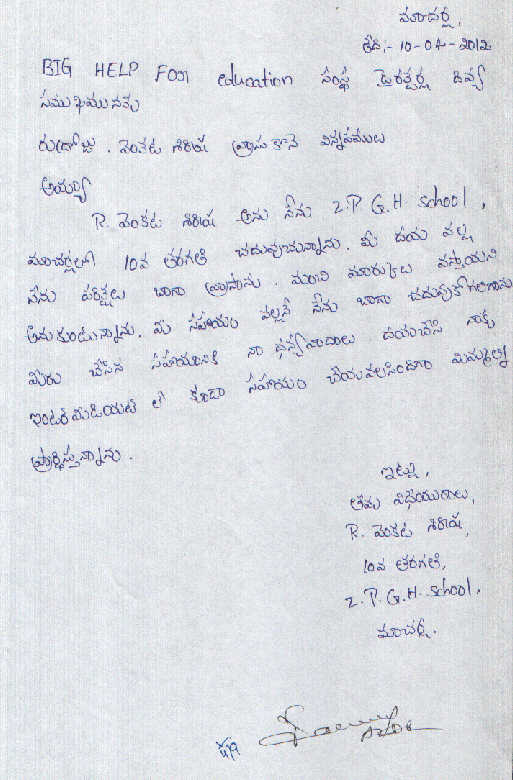 మాచర్ల,
తేది:- 10-04-2012
BIG HELP FOR education సంస్థ డైరెక్టర్ల దివ్య
సముఖమునకు
రుద్రోజు. వెంకట శిరీష వ్రాసుకొనె విన్నపములు
అయ్యా
R. వెంకట శిరీష అను నేను Z.P.G.H school,
మాచర్లలో 10వ తరగతి చదువుచున్నాను. మీ దయ వల్ల
నేను పరీక్షలు బాగా వ్రాసాను. మంచి మార్కులు వస్తాయని
అనుకుంటున్నాను. మీ సహాయం వల్లనే నేను బాగా చదువుకోగలిగాను
మీరు చేసిన సహాయానికి నా ధన్యవాదాలు. దయచేసి నాకు
ఇంటర్ మీడియట్ లో కూడా సహాయం చేయవలసిందిగా మిమ్మల్ని
ప్రార్థిస్తున్నాను.
ఇట్లు,
తమ విధేయురాలు,
R. వెంకట శిరీష,
10వ తరగతి,
Z.P.G.H. school,
మాచర్ల.